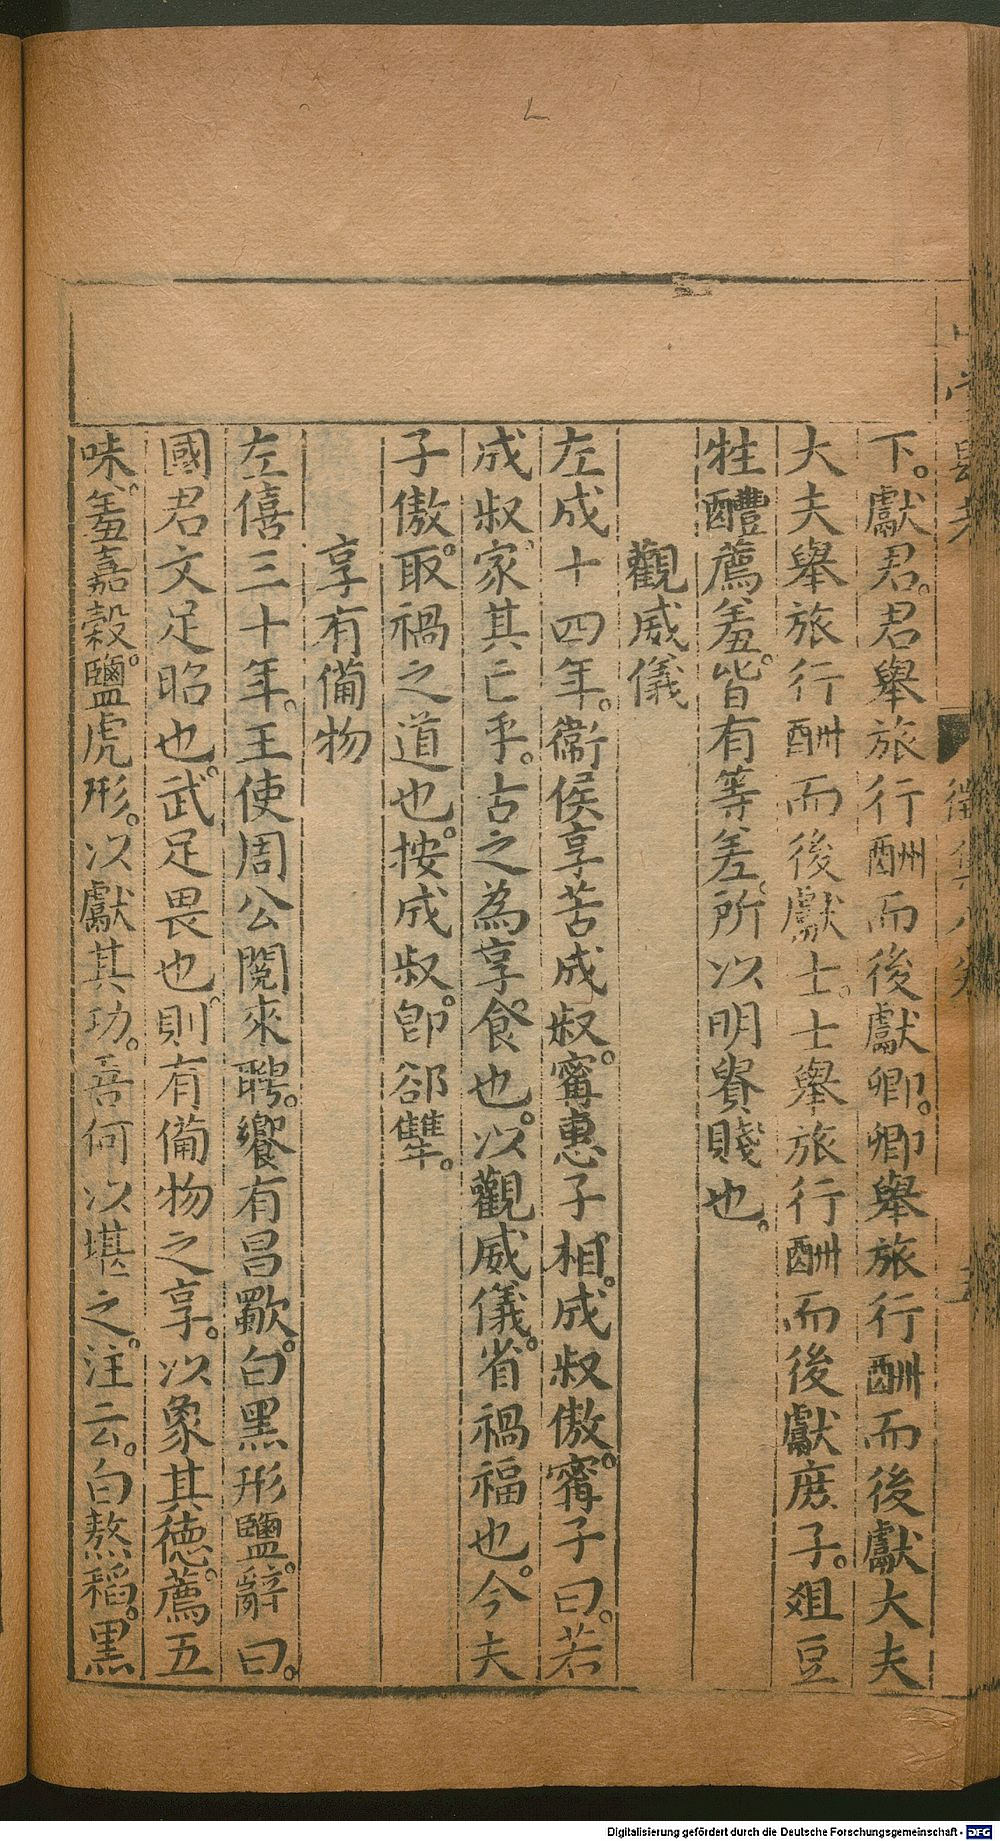 下。獻君。君舉旅行酬而後獻卿。卿舉旅行酬而後獻大夫
大夫舉旅行酬而後獻士。士舉旅行酬而後獻庶子。爼豆
牲醴薦羞。皆有等差。所以明貴賤也。
觀威儀
左成十四年。衞侯享苦成叔。甯惠子相。成叔傲。甯子曰。若
成叔家其亡乎。古之為享食也。以觀威儀。省禍福也。今夫
子傲。取禍之道也。按成叔。即郤犫。
享有備物
左僖三十年。王使周公閱來聘。饗有昌歜。白黑形鹽。辭曰。
國君文足昭也。武足畏也。則有備物之享。以象其德。薦五
味。羞嘉穀。鹽虎形。以獻其功。吾何以堪之。注云。白熬稻。黑
Digitalisierung gefördert durch die Deutsche Forschungsgemeinschaft - DFG